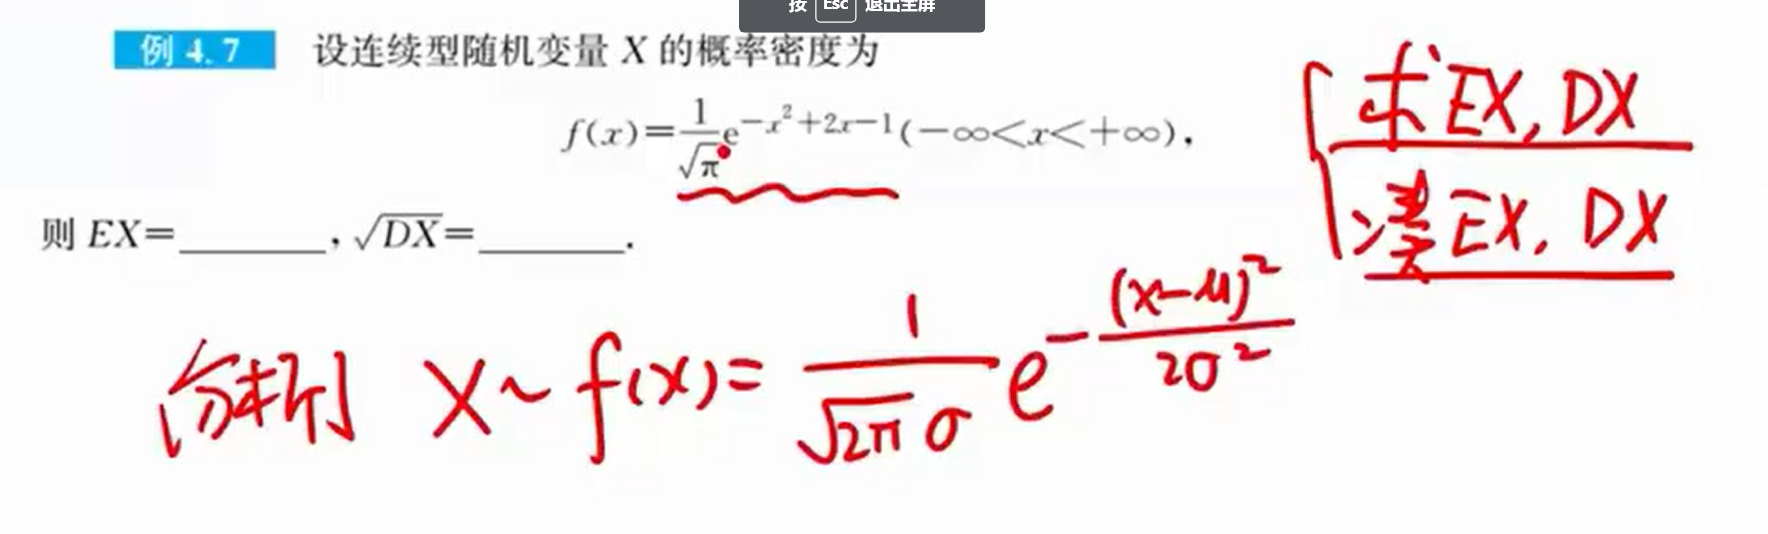 按 Esc 退出全屏
例 4.7 设连续型随机变量 X 的概率密度为
f(x)=\frac{1}{\sqrt{π}}e^{-x^2+2x-1}(-∞<x<+∞),
则 EX=________, \sqrt{DX}=________.
求 EX, DX
凑 EX, DX
分析 X~f(x)=\frac{1}{\sqrt{2π}σ}e^{-\frac{(x-μ)^2}{2σ^2}}